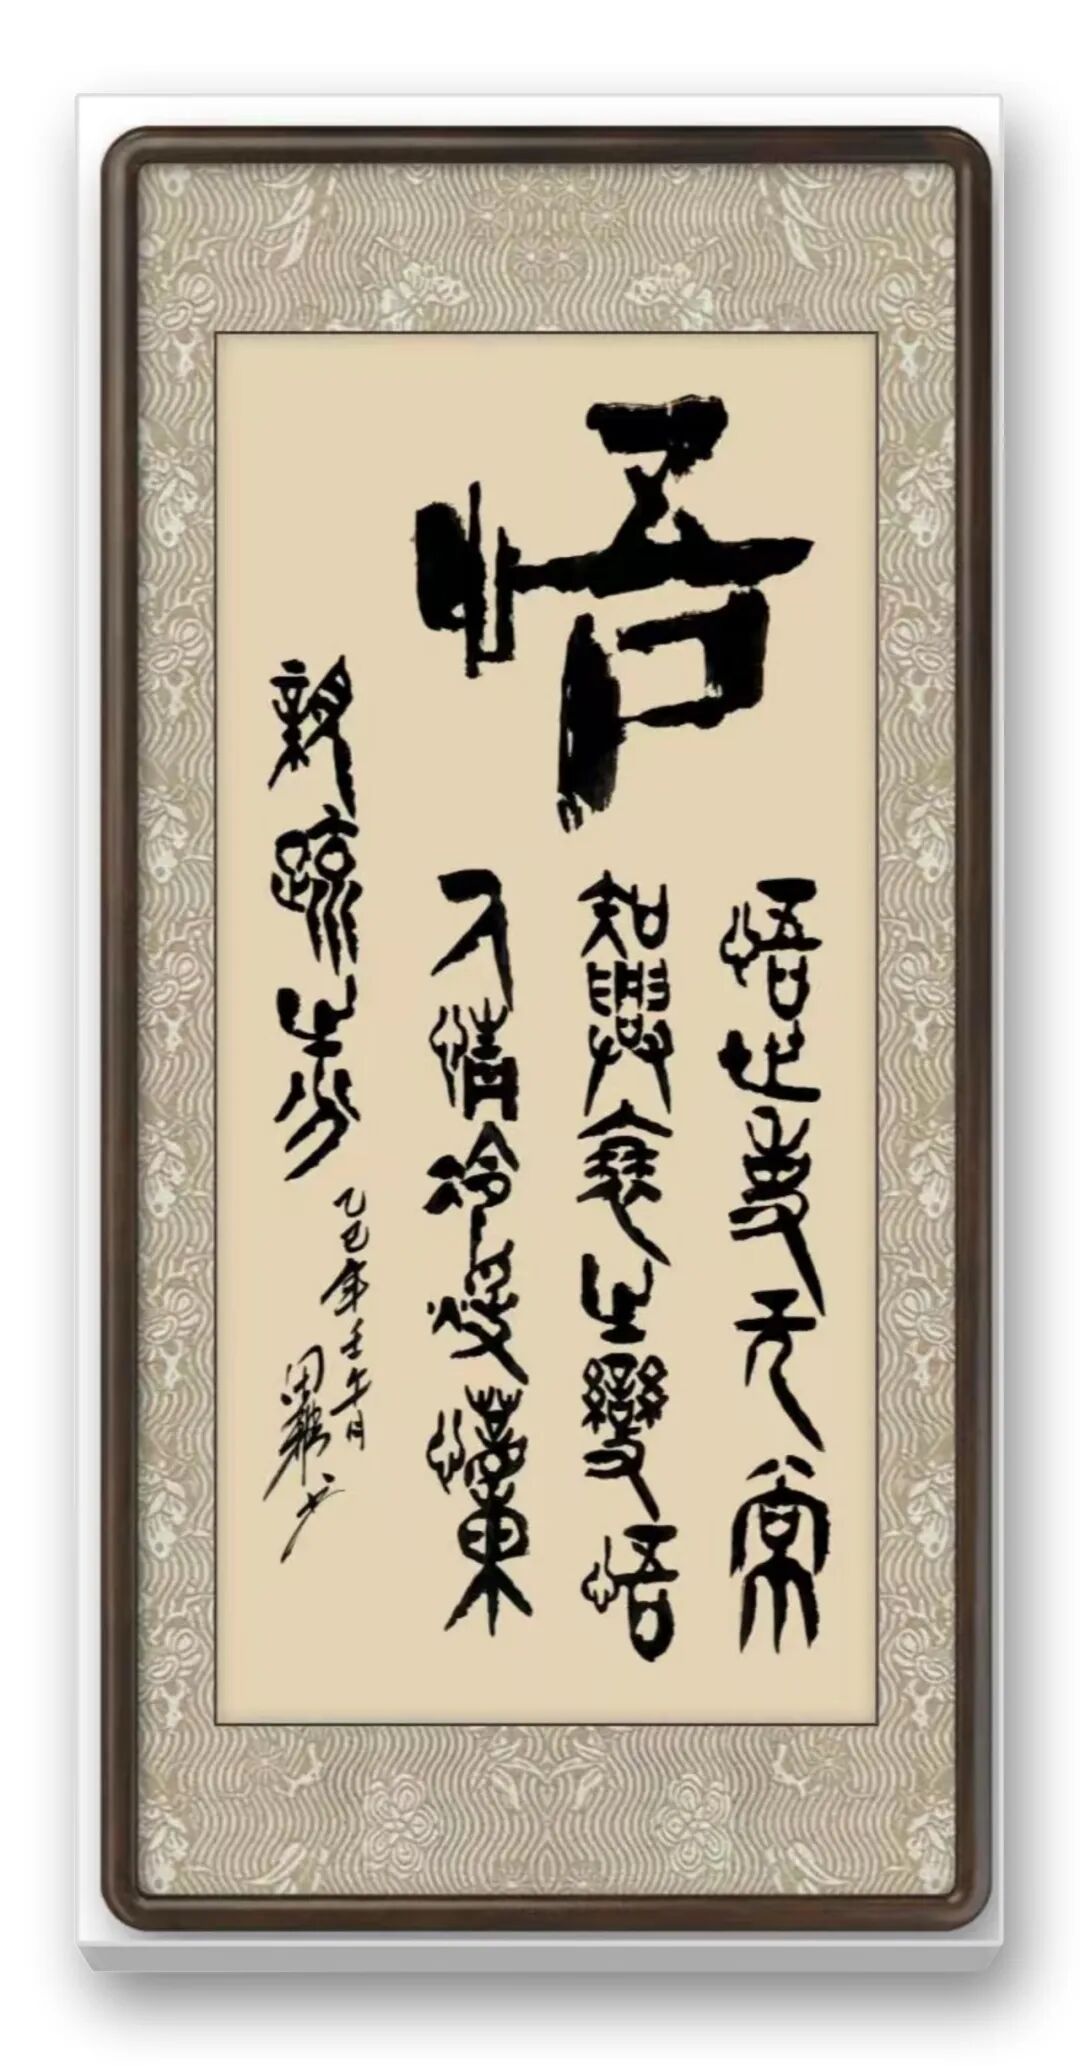 悟
悟世事无常
知興衰之變悟
人情冷暖懂
親疏之分
乙巳年壬午月
田 书